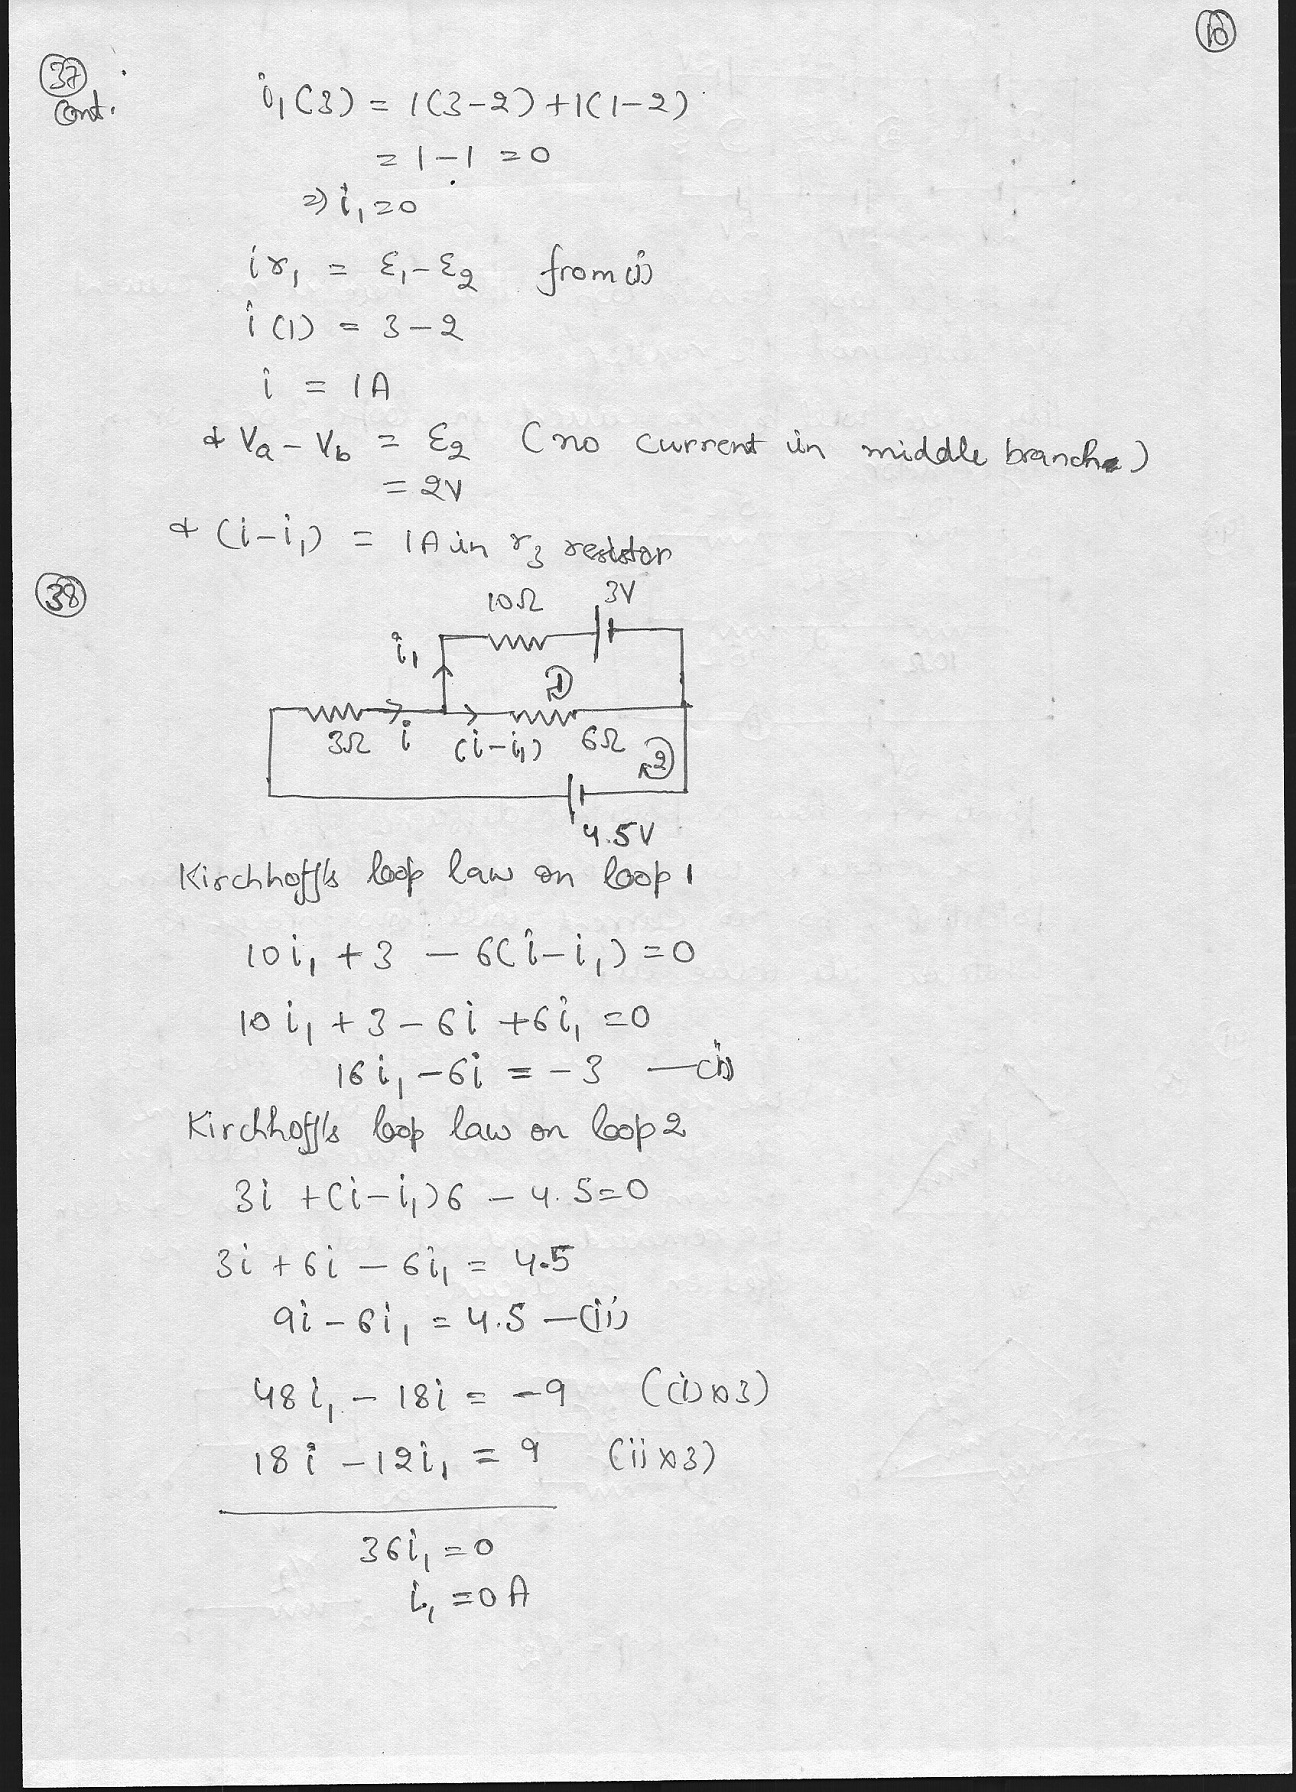 10
37
Cont.
i₁(3) = 1(3-2)+1(1-2)
= 1-1 = 0
⇒ i₁=0
i r₁ = ε₁-ε₂ from (i)
i(1) = 3-2
i = 1A
& Va - Vb = ε₂ (no current in middle branch)
= 2V
& (i-i₁) = 1A in r₃ resistor
38
10Ω 3V
i₁
1
3Ω i (i-i₁) 6Ω 2
4.5V
Kirchhoff's loop law on loop 1
10i₁ + 3 - 6(i-i₁) = 0
10i₁ + 3 - 6i + 6i₁ = 0
16i₁ - 6i = -3 —(i)
Kirchhoff's loop law on loop 2
3i + (i-i₁)6 - 4.5=0
3i + 6i - 6i₁ = 4.5
9i - 6i₁ = 4.5 —(ii)
48i₁ - 18i = -9 ((i)x3)
18i - 12i₁ = 9 (iix3)
36i₁ = 0
i₁ = 0 A